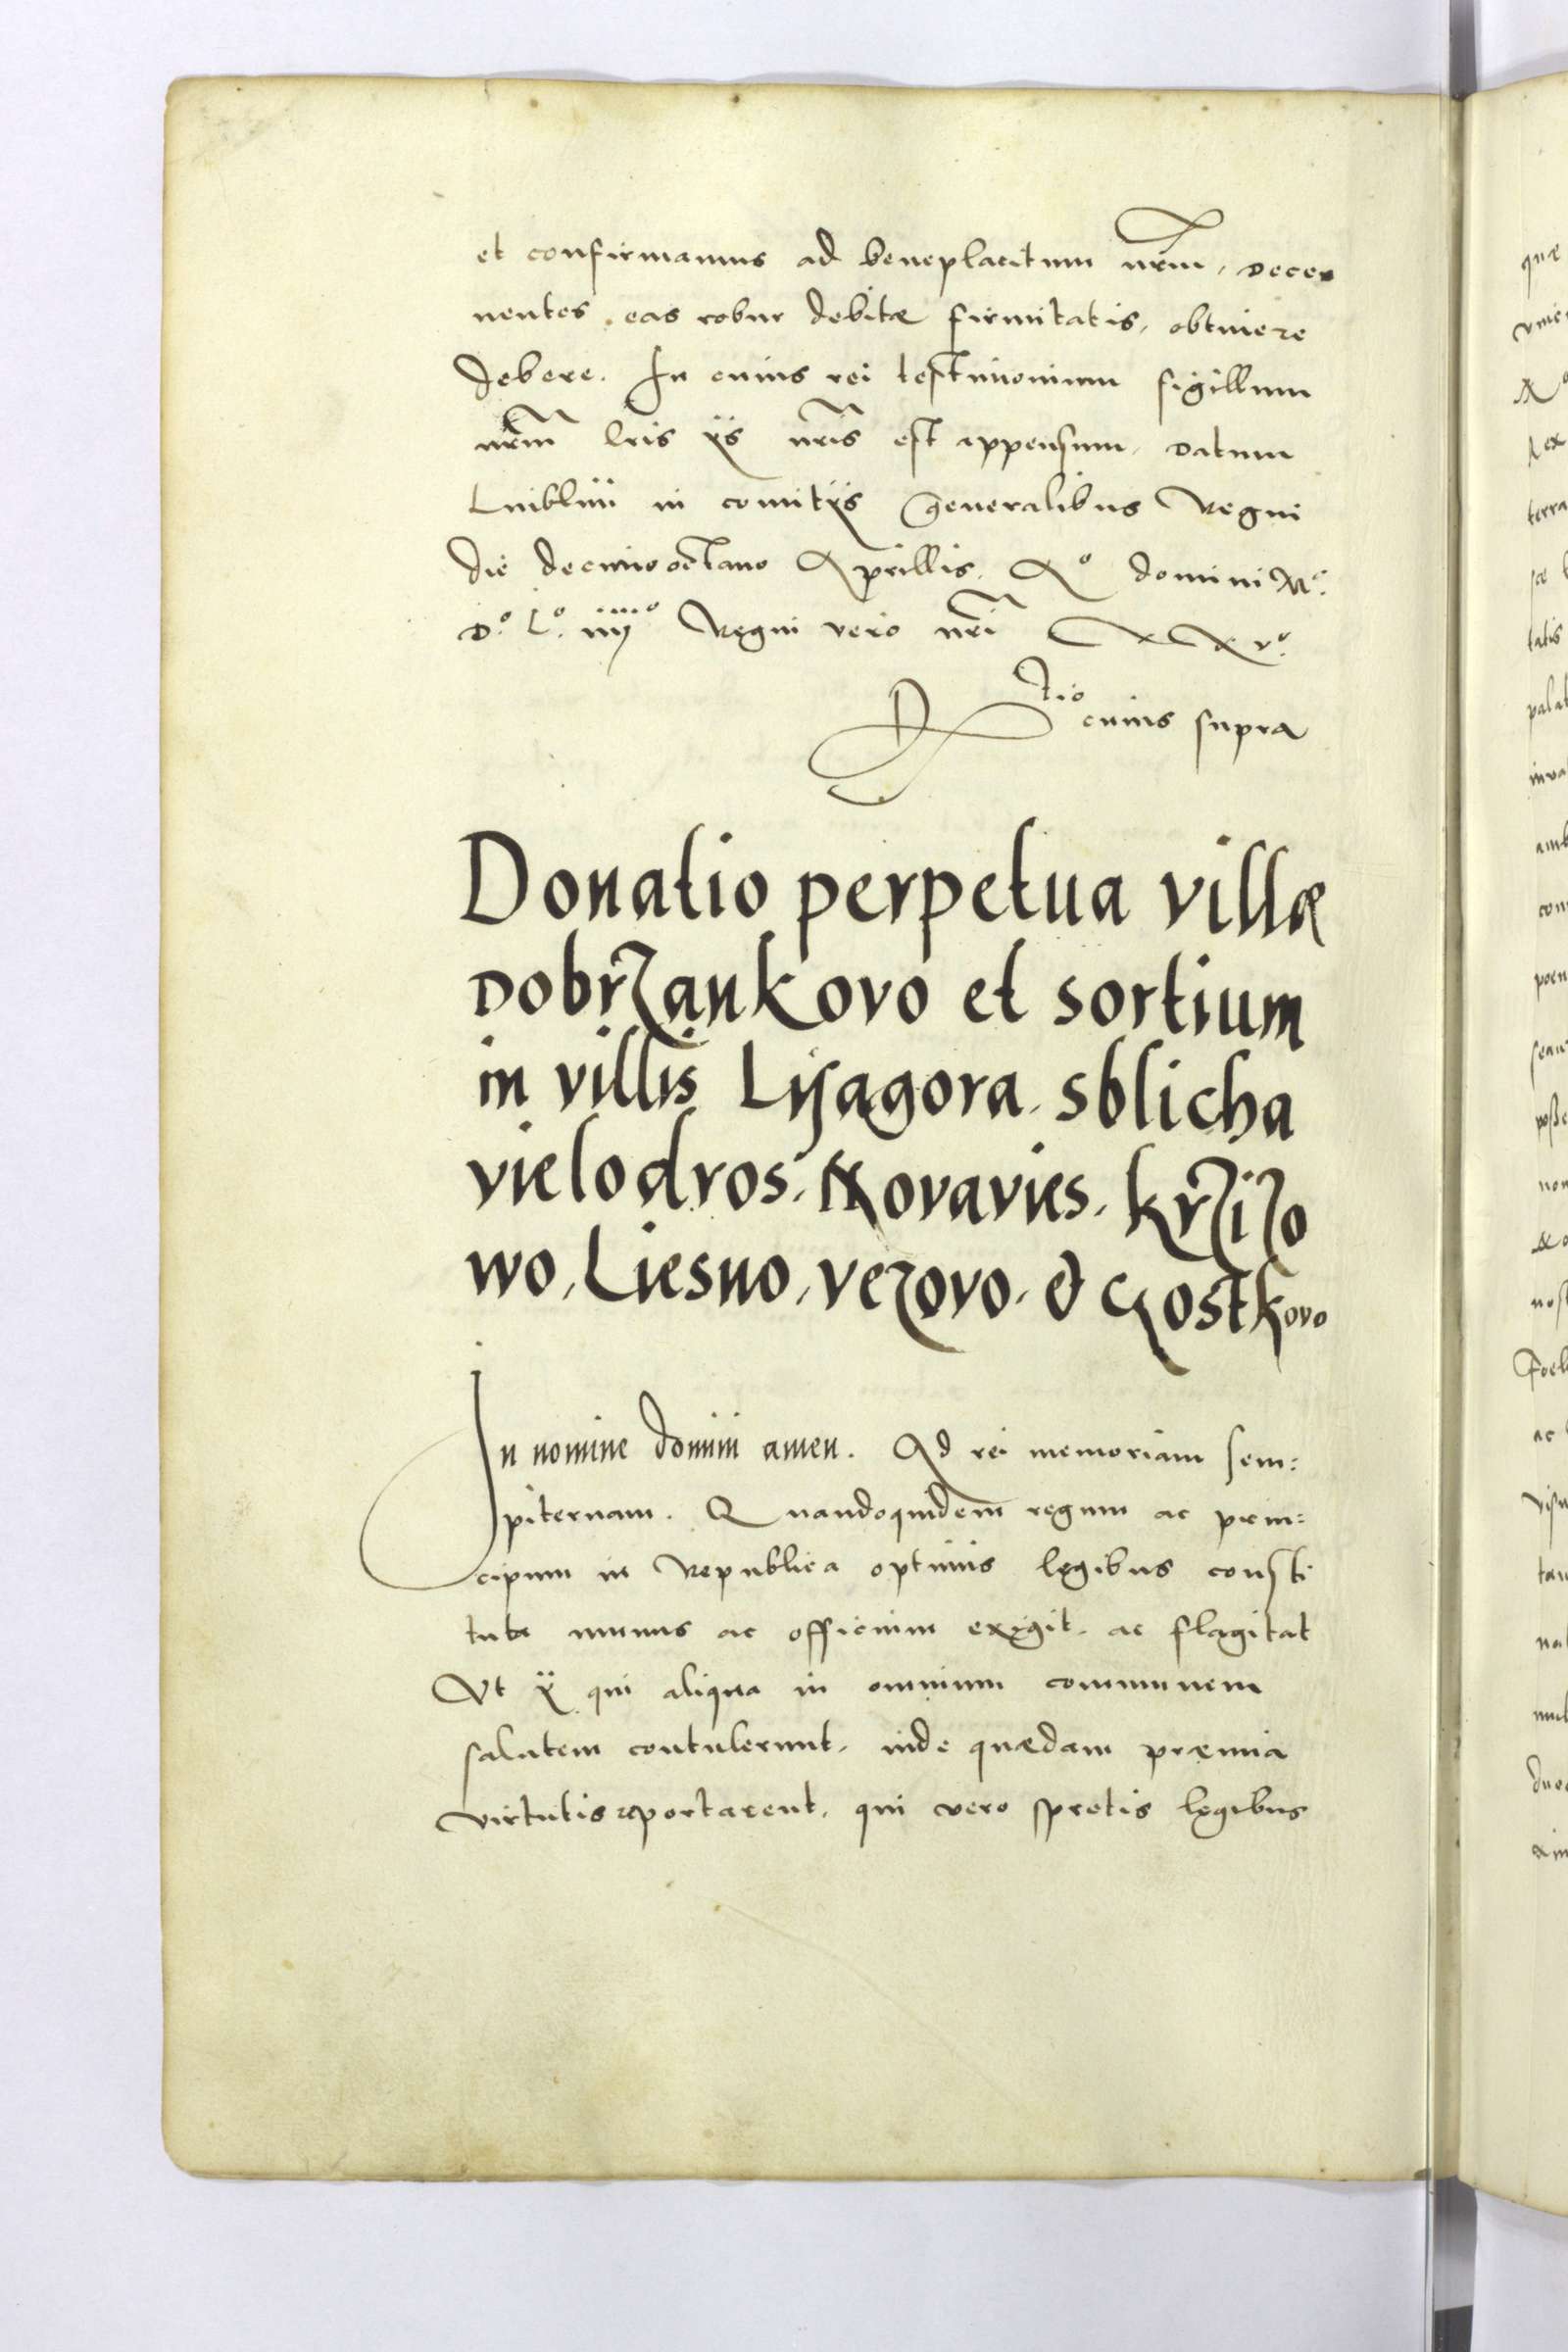 et confirmamus ad beneplacitum nrm, decer
nentes eas robur debitæ firmitatis, obtinere
debere. In cuius rei testimonium sigillum
nrm lris ÿs nris est appensum, Datum
Lublini in comitÿs Generalibus Regni
die decimooctavo Aprillis. Aº domini Mº.
Dº. Lº. iiijº Regni vero nri XXVº.
Rtio cuius supra
Donatio perpetua villæ
Dobrzankovo et sortium
in villis Lysagora. Sblicha
vielodros. Novavies. krzizo
wo, Liesno, vezovo. et Czostkovo
In nomine domini amen. Ad rei memoriam sem:
piternam. Quandoquidem regum ac prin:
cipum in Republica optimis legibus consti
tuta munus ac officium exigit. ac flagitat
Ut ÿ qui aliqua in omnium communem
salutem contulerunt, inde quædam præmia
virtutis reportarent, qui vero spretis legibus